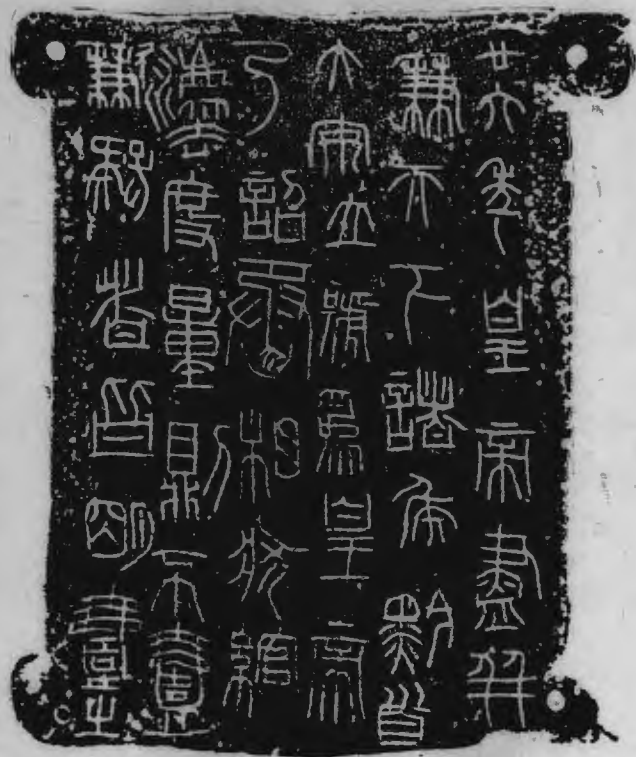 廿六年皇帝盡并
兼天下諸侯黔首
大安立號爲皇帝
乃詔丞相狀綰
灋度量則不壹
歉疑者皆明壹之